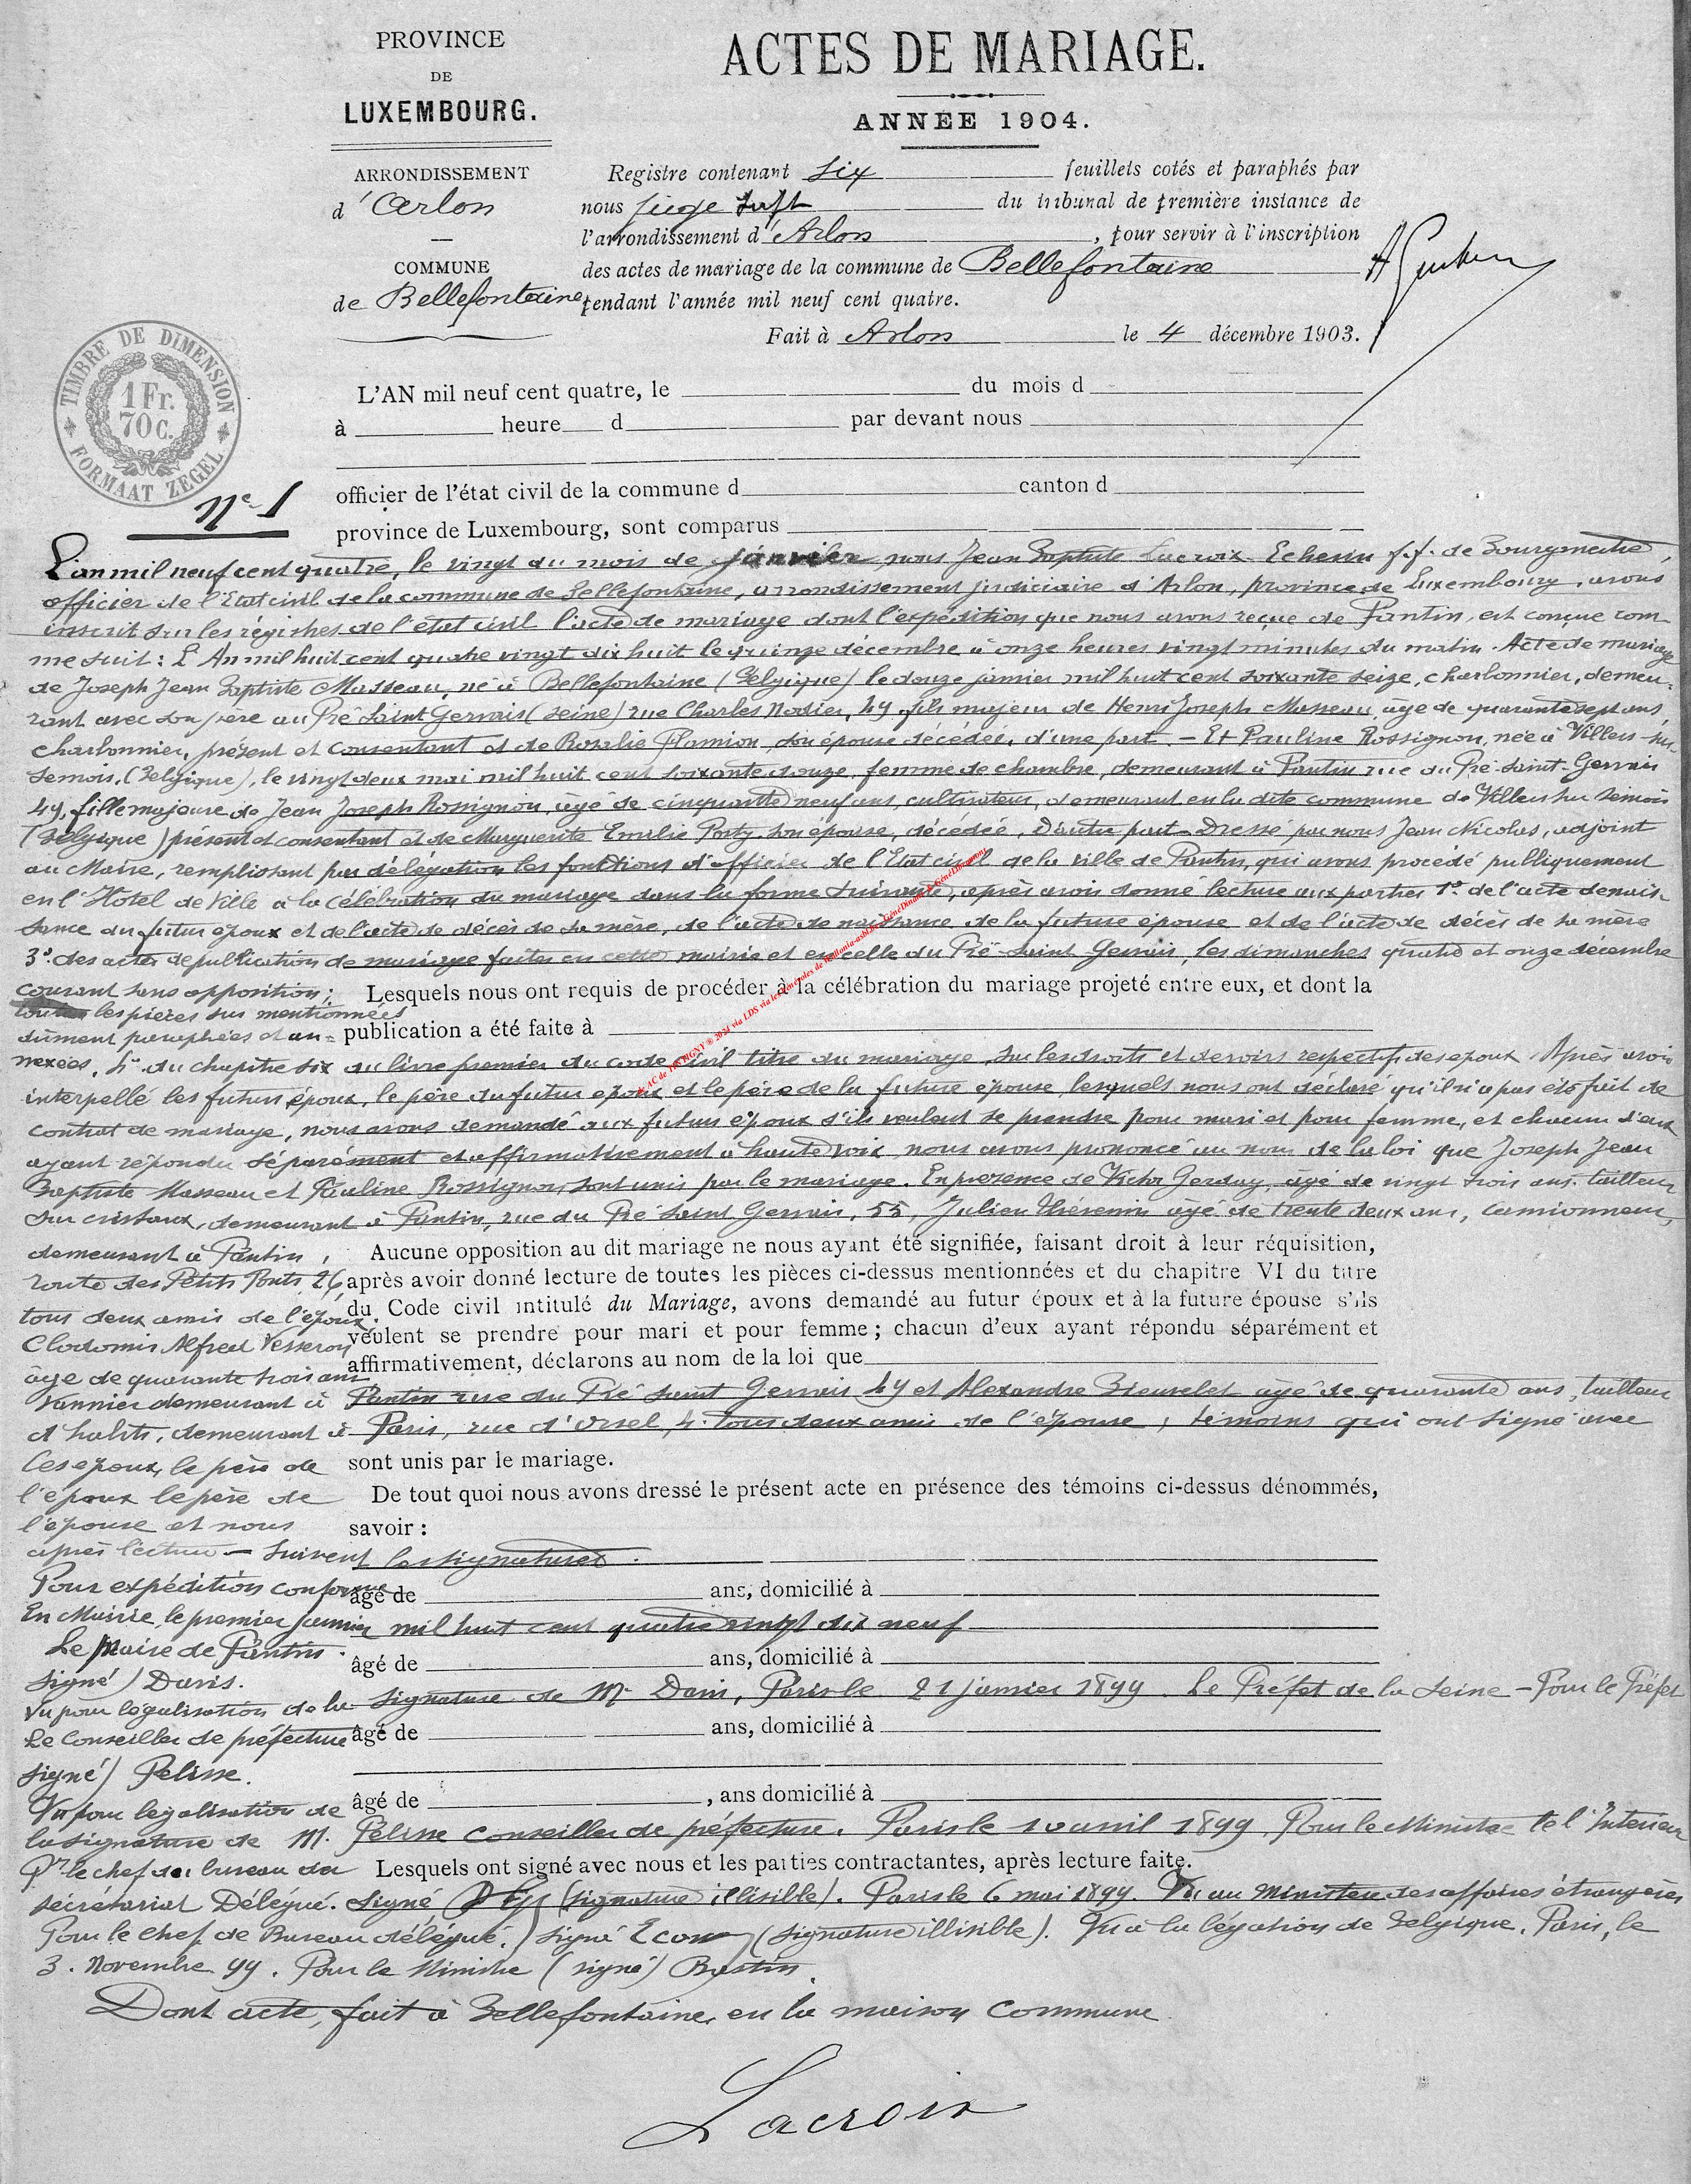 PROVINCE
DE
LUXEMBOURG.
ARRONDISSEMENT
d'Arlon
COMMUNE
de Bellefontaine
ACTES DE MARIAGE.
ANNÉE 1904.
Registre contenant six feuillets cotés et paraphés par
nous juge du tribunal de première instance de
l'arrondissement d'Arlon, pour servir à l'inscription
des actes de mariage de la commune de Bellefontaine
pendant l'année mil neuf cent quatre.
Fait à Arlon le 4 décembre 1903.
TIMBRE DE DIMENSION
1 Fr.
70 c.
FORMAAT ZEGEL
L'AN mil neuf cent quatre, le du mois d
à heure d par devant nous
officier de l'état civil de la commune d canton d
province de Luxembourg, sont comparus
N° 1
L'an mil neuf cent quatre, le vingt du mois de janvier nous Jean Baptiste Lacroix Echevin f.f. de Bourgmestre,
officier de l'Etat civil de la commune de Bellefontaine, arrondissement judiciaire d'Arlon, province de Luxembourg, avons
inscrit sur les régistres de l'état civil l'acte de mariage dont l'expédition que nous avons reçue de Pantin, est conçue com
me suit : L'An mil huit cent quatre vingt dix huit le quinze décembre à onze heures vingt minutes du matin. Acte de mariage
de Joseph Jean Baptiste Masseau, né à Bellefontaine (Belgique) le douze janvier mil huit cent soixante seize, charbonnier, demeu-
rant avec son père au Pré Saint Gervais (Seine) rue Charles Nodier, 49, fils majeur de Henri Joseph Masseau, âgé de quarante sept ans,
charbonnier, présent et consentant et de Rosalie Flamion son épouse décédée, d'une part. - Et Pauline Rossignon, née à Villers sur
Semois, (Belgique), le vingt deux mai mil huit cent soixante douze, femme de chambre, demeurant à Pantin rue du Pré-Saint-Gervais
49, fille majeure de Jean Joseph Rossignon, âgé de cinquante neuf ans, cultivateur, demeurant en la dite commune de Villers sur Semois
(Belgique) présent et consentant et de Marguerite Emélie Porty son épouse, décédée, D'autre part. Dressé par nous Jean Nicolas, adjoint
au Maire, remplissant par délégation les fonctions d'officier de l'Etat civil de la ville de Pantin, qui avons procédé publiquement
en l'Hotel de Ville à la célébration du mariage dans la forme suivante, après avoir donné lecture aux parties 1° de l'acte de nais-
sance du futur époux et de l'acte de décès de sa mère, de l'acte de naissance de la future épouse et de l'acte de décès de sa mère
3° des actes de publication de mariage faites en cette mairie et en celle du Pré-Saint Gervais, les dimanches quatre et onze décembre
courant sans opposition ; Lesquels nous ont requis de procéder à la célébration du mariage projeté entre eux, et dont la
toutes les pièces sus mentionnées
dûment paraphées et an= publication a été faite à
nexées, 4° du chapitre six du livre premier du code civil titre du mariage, sur les droits et devoirs respectifs des époux. Après avoir
interpellé les futurs époux, le père du futur époux et le père de la future épouse, lesquels nous ont déclaré qu'il n'a pas été fait de
contrat de mariage, nous avons demandé aux futurs époux s'ils veulent se prendre pour mari et pour femme, et chacun d'eux
ayant répondu séparément et affirmativement à haute voix nous avons prononcé au nom de la loi que Joseph Jean
Baptiste Masseau et Pauline Rossignon, sont unis par le mariage. En présence de Victor Gerday, âgé de vingt trois ans, tailleur
sur cristaux, demeurant à Pantin, rue du Pré Saint Gervais, 55, Julien Thérémin âgé de trente deux ans, camionneur,
demeurant à Pantin, Aucune opposition au dit mariage ne nous ayant été signifiée, faisant droit à leur réquisition,
route des Petits Ponts, 26, après avoir donné lecture de toutes les pièces ci-dessus mentionnées et du chapitre VI du titre
tous deux amis de l'époux. du Code civil intitulé du Mariage, avons demandé au futur époux et à la future épouse s'ils
Clodomir Alfred Vesseron veulent se prendre pour mari et pour femme ; chacun d'eux ayant répondu séparément et
âgé de quarante trois ans affirmativement, déclarons au nom de la loi que
Vannier demeurant à Pantin rue du Pré Saint Gervais 49 et Alexandre Bieuvelet âgé de quarante ans, tailleur
d'habits, demeurant à Paris, rue d'Orsel, 4. tous deux amis de l'épouse, témoins qui ont signé avec
les époux, le père de sont unis par le mariage.
l'époux le père de De tout quoi nous avons dressé le présent acte en présence des témoins ci-dessus dénommés,
l'épouse et nous savoir :
après lecture - Suivent les signatures.
Pour expédition conforme âgé de ans, domicilié à
En Mairie, le premier janvier mil huit cent quatre vingt dix neuf
Le Maire de Pantin. âgé de ans, domicilié à
signé) Davis.
Vu pour légalisation de la signature de Mr Davis, Paris le 21 janvier 1899. Le Préfet de la Seine - Pour le Préfet
Le Conseiller de préfecture âgé de ans, domicilié à
signé) Pelisse.
Vu pour légalisation de âgé de , ans domicilié à
la signature de M. Pelisse Conseiller de préfecture. Paris le 10 avril 1899. Pour le Ministre de l'Intérieur
Pr le chef du bureau du Lesquels ont signé avec nous et les parties contractantes, après lecture faite.
sécrétariat Délégué. Signé (signature illisible). Paris le 6 mai 1899. Vu au Ministère des affaires étrangères
Pour le chef de Bureau délégué.) signé (signature illisible). Vu à la légation de Belgique. Paris, le
3. Novembre 99. Pour le Ministre (signé) Bastin.
Dont acte, fait à Bellefontaine, en la maison Commune
Lacroix